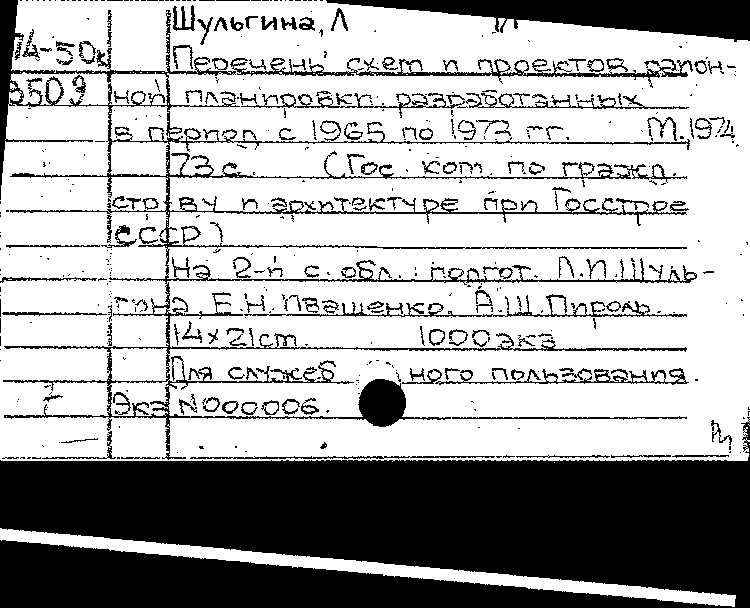 Шульгина, Л
74-50к Перечень схем и проектов район-
3509 ной планировки, разработанных
в период с 1965 по 1973 гг. М., 1974
73 с. (Гос. ком. по гражд.
стр-ву и архитектуре при Госстрое
СССР)
На 2-й с. обл.: подгот. Л.И. Шуль-
гина, Е.Н. Иващенко, А.Ш. Пироль.
14×21 cm. 1000 экз
Для служебного пользования.
7 Экз N000006.